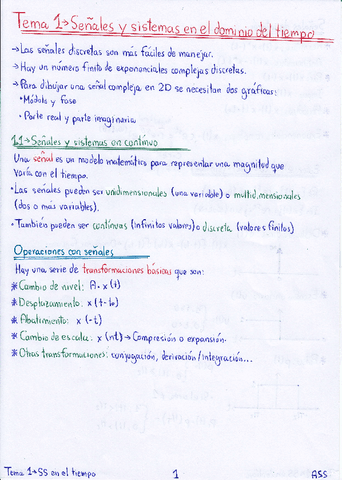 Tema 1→Señales y sistemas en el dominio del tiempo
→Las señales discretas son más fáciles de manejar.
→Hay un número finito de exponenciales complejas discretas.
→Para dibujar una señal compleja en 2D se necesitan dos gráficas:
• Módulo y Fase
• Parte real y parte imaginaria
1.1→Señales y sistemas en contínuo
Una señal es un modelo matemático para representar una magnitud que
varía con el tiempo.
• Las señales pueden ser unidimensionales (una variable) o multidimensionales
(dos o más variables).
• También pueden ser contínuas (infinitos valores) o discreta (valores finitos)
Operaciones con señales
Hay una serie de transformaciones básicas que son:
* Cambio de nivel: A·x(t)
* Desplazamiento: x(t-t₀)
* Abatimiento: x(-t)
* Cambio de escala: x(nt)→Compresión o expansión.
* Otras transformaciones: conjugación, derivación/integración...
Tema 1→SS en el tiempo 1 ASS